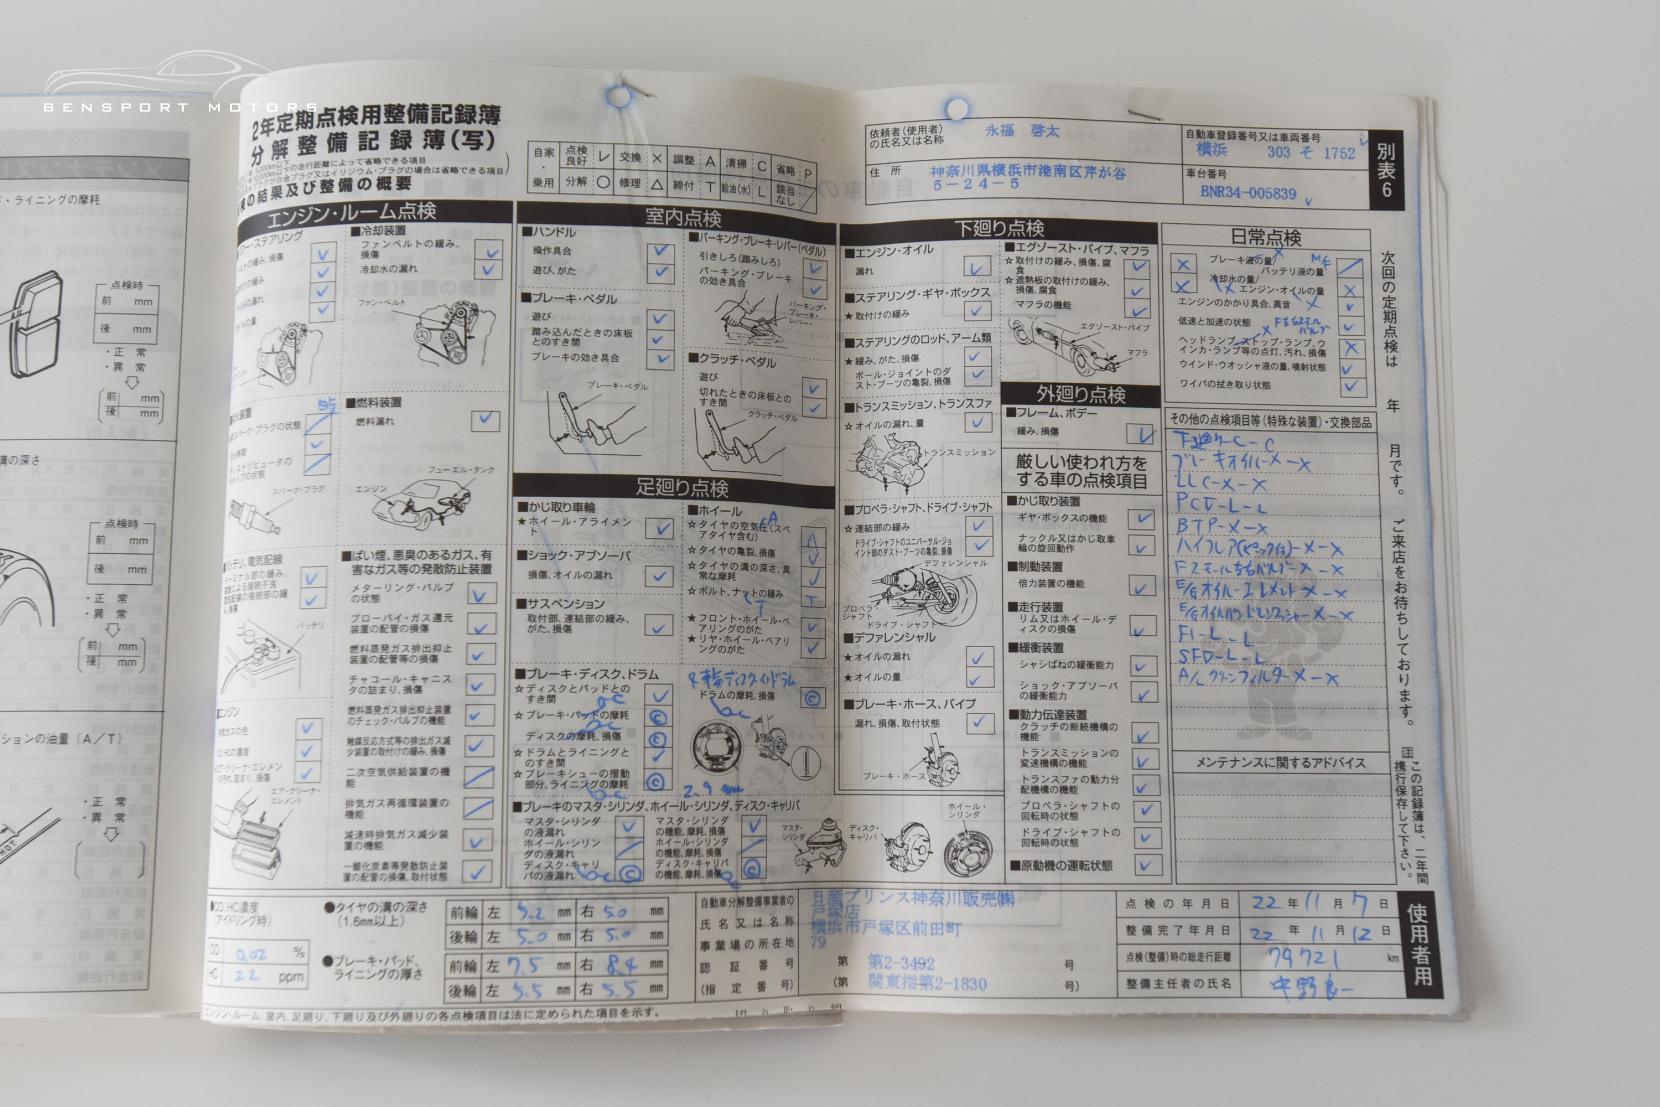 BENSPORT MOTORS
2年定期点検用整備記録簿
分解整備記録簿(写)
検の結果及び整備の概要
自家・乗用
点検良好 レ 交換 × 調整 A 清掃 C 省略 P
分解 ○ 修理 △ 締付 T 給油(水) L 該当なし /
依頼者(使用者)の氏名又は名称
永福 啓太
自動車登録番号又は車両番号
横浜 303 そ 1752
住所
神奈川県横浜市港南区芹が谷
5-24-5
車台番号
BNR34-005839
別表6
ド・ライニングの摩耗
点検時
前 mm
後 mm
・正 常
・異 常
前 mm
後 mm
溝の深さ
点検時
前 mm
後 mm
・正 常
・異 常
前 mm
後 mm
ションの油量(A/T)
・正 常
・異 常
HOT
エンジン・ルーム点検
ステアリング
の緩み、損傷
■冷却装置
ファンベルトの緩み、損傷
冷却水の漏れ
ファン・ベルト
スパーク・プラグの状態
ディストリビュータのキャップの状態
スパーク・プラグ
■燃料装置
燃料漏れ
フューエル・タンク
エンジン
バッテリ、電気配線
ターミナル部の緩み、
バッテリ
■ばい煙、悪臭のあるガス、有害なガス等の発散防止装置
メターリング・バルブの状態
ブローバイ・ガス還元装置の配管の損傷
燃料蒸発ガス排出抑止装置の配管等の損傷
チャコール・キャニスタの詰まり、損傷
燃料蒸発ガス排出抑止装置のチェック・バルブの機能
触媒反応方式等の排出ガス減少装置の取付けの緩み、損傷
二次空気供給装置の機能
排気ガス再循環装置の機能
減速時排気ガス減少装置の機能
一酸化炭素等発散防止装置の配管の損傷、取付状態
エンジン
排気ガスの色
CO、HCの濃度
エア・クリーナ・エレメント
室内点検
■ハンドル
操作具合
遊び、がた
■ブレーキ・ペダル
遊び
踏み込んだときの床板とのすき間
ブレーキの効き具合
ブレーキ・ペダル
■パーキング・ブレーキ・レバー(ペダル)
引きしろ(踏みしろ)
パーキング・ブレーキの効き具合
パーキング・ブレーキ・レバー
■クラッチ・ペダル
遊び
切れたときの床板とのすき間
クラッチ・ペダル
足廻り点検
■かじ取り車輪
★ホイール・アライメント
■ショック・アブソーバ
損傷、オイルの漏れ
■サスペンション
取付部、連結部の緩み、がた、損傷
■ホイール
☆タイヤの空気圧(スペアタイヤ含む)
A
☆タイヤの亀裂、損傷
☆タイヤの溝の深さ、異常な摩耗
☆ボルト、ナットの緩み
T
★フロント・ホイール・ベアリングのがた
★リヤ・ホイール・ベアリングのがた
■ブレーキ・ディスク、ドラム
☆ディスクとパッドとのすき間
☆ブレーキ・パッドの摩耗
C
ディスクの摩耗、損傷
C
☆ドラムとライニングとのすき間
☆ブレーキシューの摺動部分、ライニングの摩耗
C
ドラムの摩耗、損傷
C
2.9 mm
■ブレーキのマスタ・シリンダ、ホイール・シリンダ、ディスク・キャリパ
マスタ・シリンダの液漏れ
ホイール・シリンダの液漏れ
ディスク・キャリパの液漏れ
C
マスタ・シリンダの機能、摩耗、損傷
ホイール・シリンダの機能、摩耗、損傷
ディスク・キャリパの機能、摩耗、損傷
C
マスタ・シリンダ
ディスク・キャリパ
ホイール・シリンダ
下廻り点検
■エンジン・オイル
漏れ
■ステアリング・ギヤ・ボックス
★取付けの緩み
■ステアリングのロッド、アーム類
★緩み、がた、損傷
ボール・ジョイントのダスト・ブーツの亀裂、損傷
■トランスミッション、トランスファ
☆オイルの漏れ、量
トランスミッション
■プロペラ・シャフト、ドライブ・シャフト
☆連結部の緩み
ドライブ・シャフトのユニバーサル・ジョイント部のダスト・ブーツの亀裂、損傷
デファレンシャル
プロペラ・シャフト
ドライブ・シャフト
■デファレンシャル
★オイルの漏れ
★オイルの量
■ブレーキ・ホース、パイプ
漏れ、損傷、取付状態
ブレーキ・ホース
■エグゾースト・パイプ、マフラ
☆取付けの緩み、損傷、腐食
☆遮熱板の取付けの緩み、損傷、腐食
マフラの機能
エグゾースト・パイプ
マフラ
外廻り点検
■フレーム、ボデー
緩み、損傷
厳しい使われ方をする車の点検項目
■かじ取り装置
ギヤ・ボックスの機能
ナックル又はかじ取車輪の旋回動作
■制動装置
倍力装置の機能
■走行装置
リム又はホイール・ディスクの損傷
■緩衝装置
シャシばねの緩衝能力
ショック・アブソーバの緩衝能力
■動力伝達装置
クラッチの断続機構の機能
トランスミッションの変速機構の機能
トランスファの動力分配機構の機能
プロペラ・シャフトの回転時の状態
ドライブ・シャフトの回転時の状態
■原動機の運転状態
日常点検
ブレーキ液の量
バッテリ液の量
冷却水の量
エンジン・オイルの量
エンジンのかかり具合、異音
低速と加速の状態
ヘッドランプ、ストップ・ランプ、ウインカ・ランプ等の点灯、汚れ、損傷
ウインド・ウオッシャ液の量、噴射状態
ワイパの拭き取り状態
その他の点検項目等(特殊な装置)・交換部品
下廻り-C-C
ブレーキオイル-×-×
LLC-×-×
PCD-L-L
BTP-×-×
Fスモール右右バルブ-×-×
E/gオイル・エレメント-×-×
E/gオイルパンドレンワッシャー-×-×
F1-L-L
SFD-L-L
A/Lクリーンフィルター-×-×
メンテナンスに関するアドバイス
次回の定期点検は 年 月です。 ご来店をお待ちしております。
注 この記録簿は、二年間携行保存して下さい。
CO、HC濃度(アイドリング時)
CO 0.02 %
HC 22 ppm
●タイヤの溝の深さ(1.6mm以上)
前輪 左 5.2 mm 右 5.0 mm
後輪 左 5.0 mm 右 5.0 mm
●ブレーキ・パッド、ライニングの厚さ
前輪 左 7.5 mm 右 8.4 mm
後輪 左 5.5 mm 右 5.5 mm
自動車分解整備事業者の氏名又は名称
事業場の所在地
認証番号
(指定番号)
日産プリンス神奈川販売㈱
戸塚店
横浜市戸塚区前田町
79
第 第2-3492 号
(第 関東指第2-1830 号)
点検の年月日 22年11月7日
整備完了年月日 22年11月12日
点検(整備)時の総走行距離 79721 km
整備主任者の氏名 中野良一
使用者用
エンジン・ルーム、室内、足廻り、下廻り及び外廻りの各点検項目は法に定められた項目を示す。